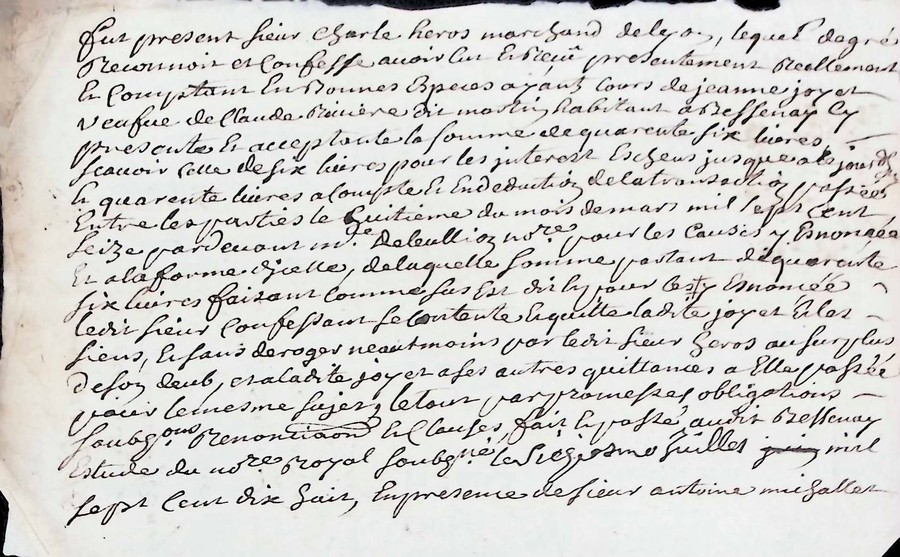 fut present sieur Charle heros marchand de lyon, lequel de gré
Reconnoit et Confesse avoir eut et Reçeu presentement Reellement
Et Comptant En Bonnes Especes ayant Cours de jeanne joyet
veufue de Claude Riviere dit martin habitant a Bessenay Cy
presente Et acceptante la somme de quarente six livres,
scavoir Celle de six livres pour les interest Escheus jusque a ce jourdhuy
Et quarente livres a Compte Et En deduction de la transaction passée
Entre les parties le huitieme du mois de mars mil sept Cent
seize pardevant me. debullioz nore. pour les Causes y Enoncée
Et a la forme d'jcelle, de laquelle somme partant de quarente
six livres faisant Comme sus Est dit Et pour Ce Enoncée
ledit sieur Confessant se Contente Et quitte ladite joyet Et les
siens, Et sans deroger neantmoins par ledit sieur heros au surplus
de son deub, et a ladite joyet a ses autres quittances a Elle passée
pour le mesme sujet, le tout par promesses obligations
soubgons Renontiaons Et Clauses, fait Et passé audit Bessenay
Estude du nore Royal soubgné le juillet mil
sept Cent dix huit, En presence de sieur antoine michallet